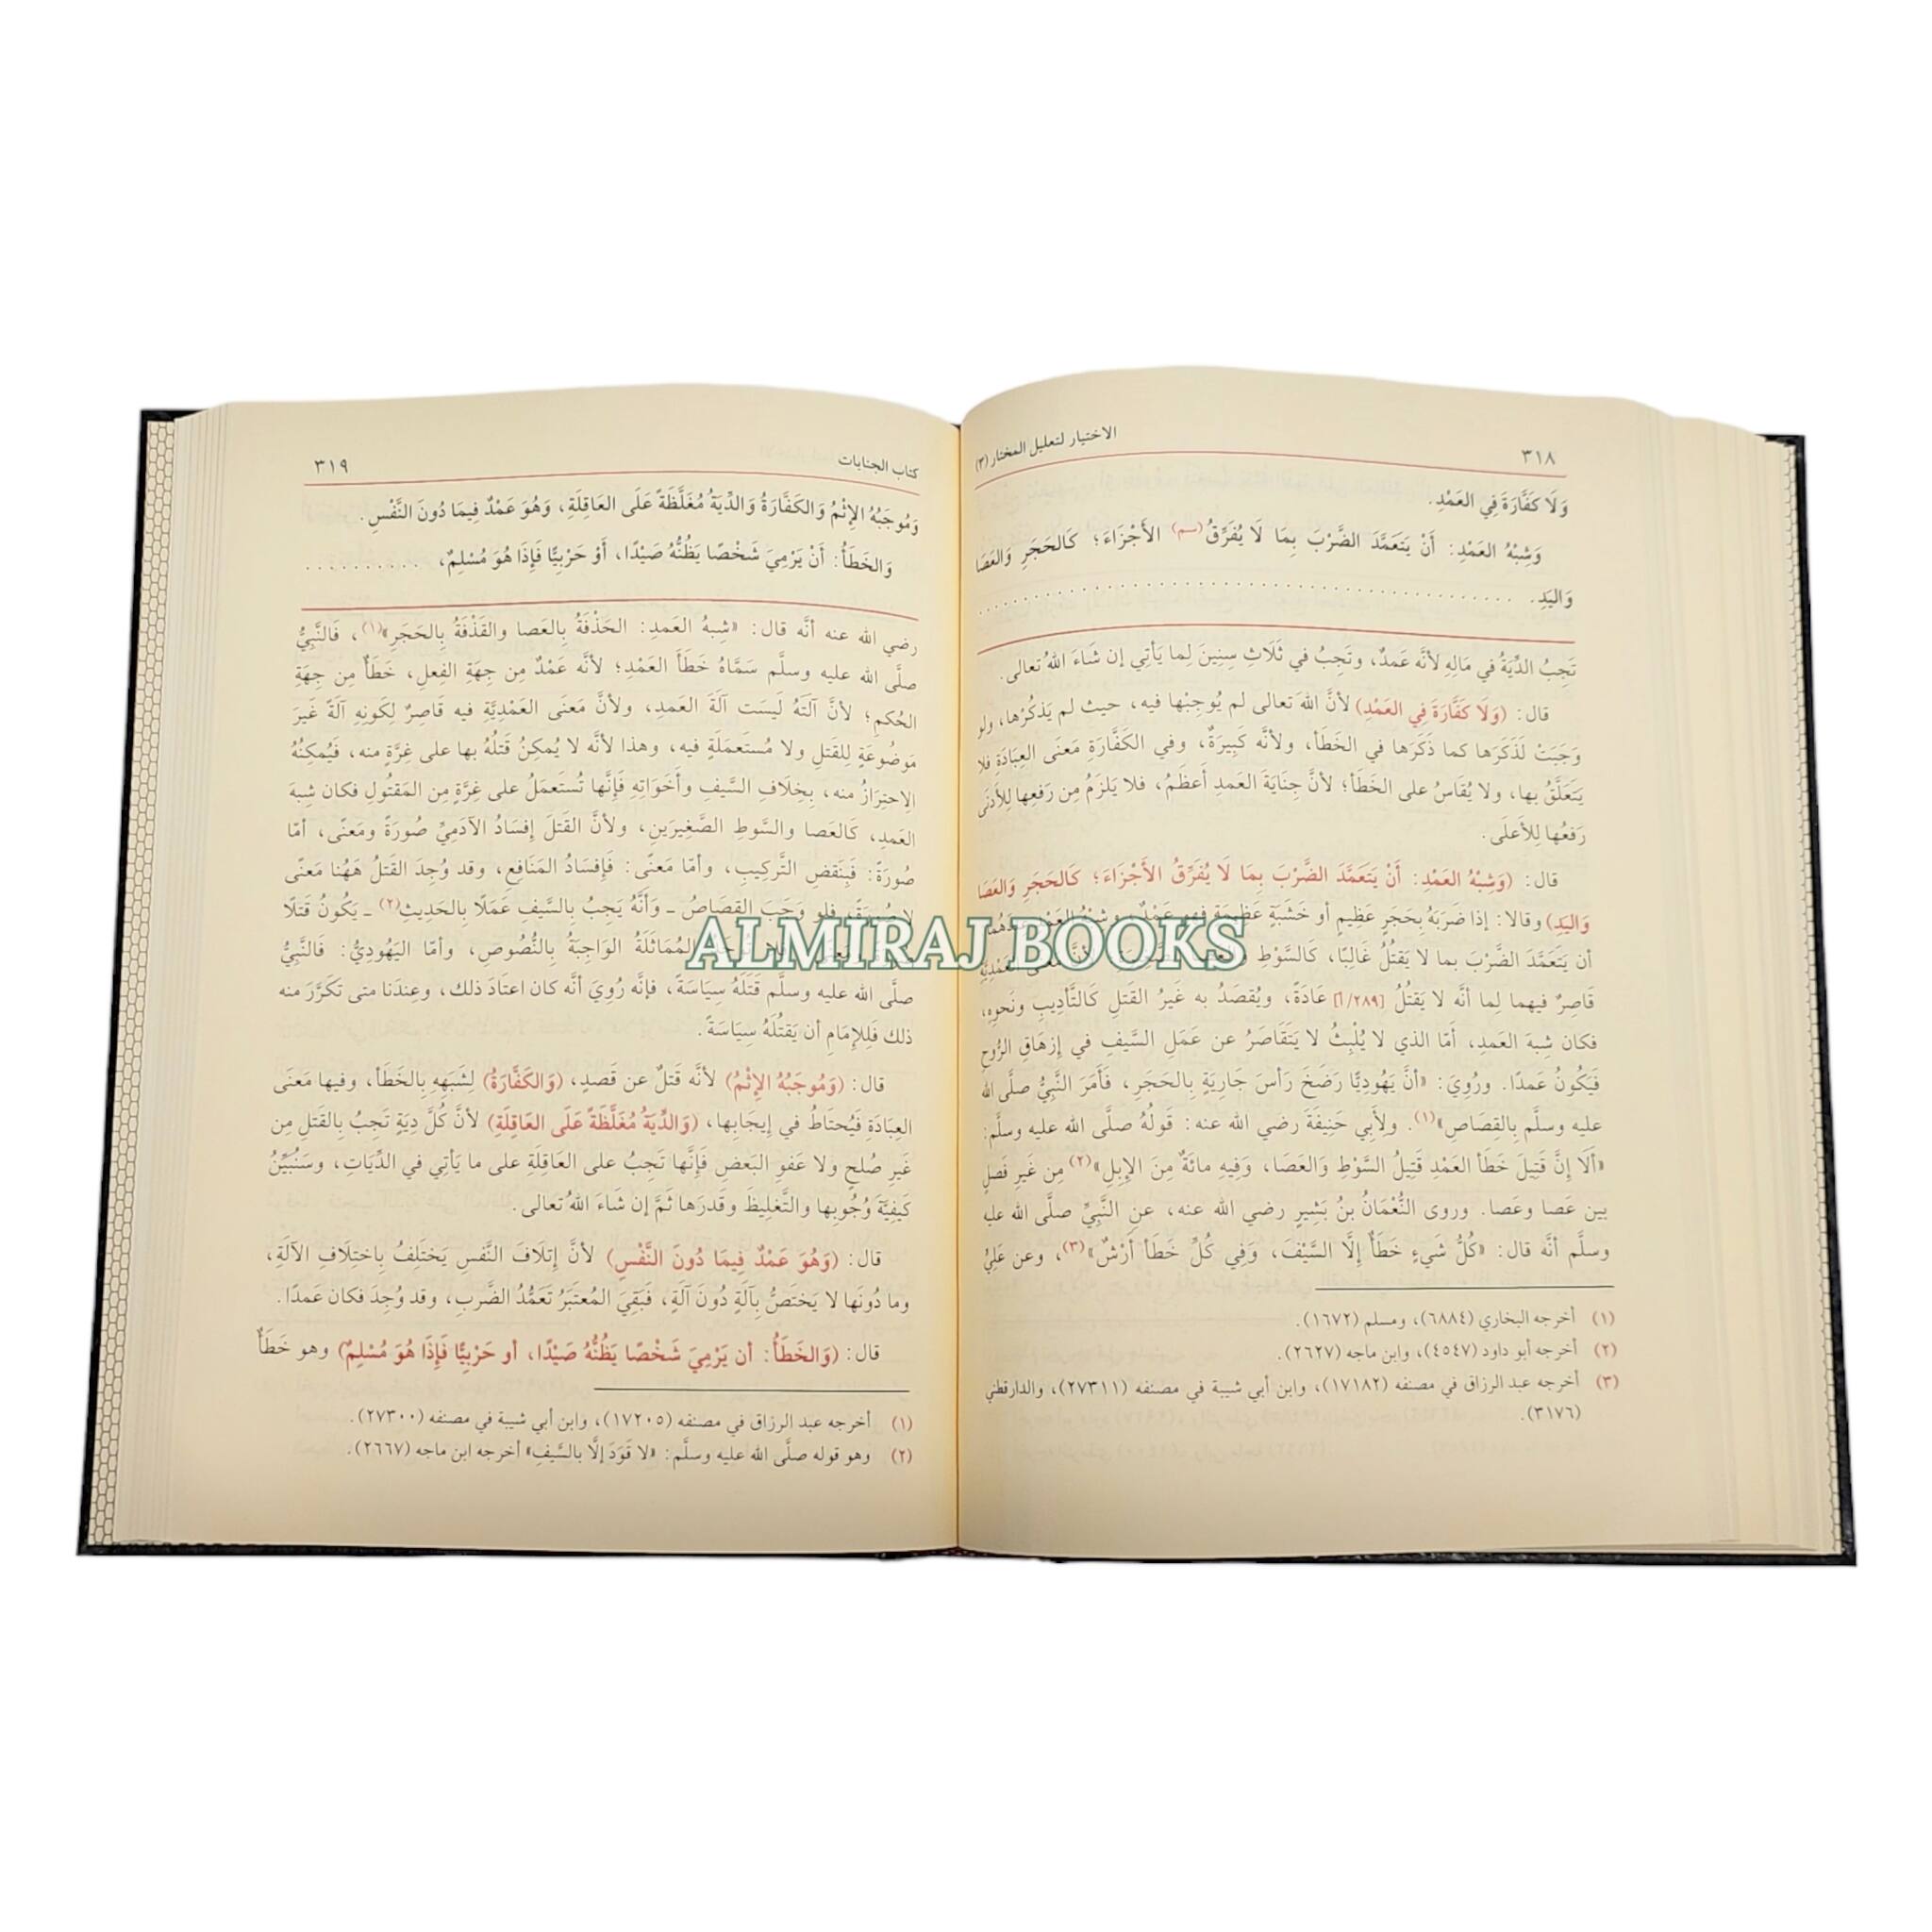 ٣١٨
الاختيار لتعليل المختار (٣)
وَلَا كَفَّارَةَ فِي العَمْدِ.
وَشِبْهُ العَمْدِ: أَنْ يَتَعَمَّدَ الضَّرْبَ بِمَا لَا يُفَرِّقُ(سم) الأَجْزَاءَ؛ كَالحَجَرِ وَالعَصَا
وَاليَدِ. . . . . . . . . . . . . . . . . . . . . . . . . . . . . . . . . . . .
تَجِبُ الدِّيَةُ في مَالِهِ لأنَّه عَمدٌ، وتَجِبُ في ثَلَاثِ سِنِينَ لما يَأتِي إن شَاءَ اللهُ تعالى.
قال: (وَلَا كَفَّارَةَ فِي العَمْدِ) لأنَّ اللهَ تعالى لم يُوجِبْها فيه، حيث لم يَذكُرْها، ولو
وَجَبَتْ لَذَكَرَها كما ذَكَرَها في الخَطَأ، ولأنَّه كَبِيرَةٌ، وفي الكَفَّارَةِ مَعنَى العِبَادَةِ فلا
يَتَعَلَّقُ بها، ولا يُقَاسُ على الخَطَأ؛ لأنَّ جِنَايَةَ العَمدِ أَعظَمُ، فلا يَلزَمُ مِن رَفعِها لِلأَدنَى
رَفعُها لِلأَعلَى.
قال: (وَشِبْهُ العَمْدِ: أَنْ يَتَعَمَّدَ الضَّرْبَ بِمَا لَا يُفَرِّقُ الأَجْزَاءَ؛ كَالحَجَرِ وَالعَصَا
وَاليَدِ) وقالا: إذا ضَرَبَهُ بِحَجَرٍ عَظِيمٍ أو خَشَبَةٍ عَظِيمَةٍ فهو عَمْدٌ، وشِبْهُ العَمْدِ
أن يَتَعَمَّدَ الضَّرْبَ بما لا يَقتُلُ غَالِبًا، كَالسَّوْطِ
قَاصِرٌ فيهما لِما أنَّه لا يَقتُلُ [٢٨٩/أ] عَادَةً، ويُقصَدُ به غَيرُ القَتلِ كَالتَّأدِيبِ ونَحوِهِ،
فكان شِبهَ العَمدِ، أمّا الذي لا يُلْبِثُ لا يَتَقَاصَرُ عن عَمَلِ السَّيفِ في إِزهَاقِ الرُّوحِ
فَيَكُونُ عَمدًا. ورُوِيَ: «أنَّ يَهُودِيًّا رَضَخَ رَأسَ جَارِيَةٍ بِالحَجَرِ، فَأَمَرَ النَّبِيُّ صلَّى الله
عليه وسلَّم بِالقِصَاصِ»(١). ولِأَبِي حَنِيفَةَ رضي الله عنه: قَولُهُ صلَّى الله عليه وسلَّم:
«أَلَا إِنَّ قَتِيلَ خَطَأ العَمْدِ قَتِيلُ السَّوْطِ وَالعَصَا، وَفِيهِ مائَةٌ مِنَ الإِبِلِ»(٢) مِن غَيرِ فَصلٍ
بين عَصا وعَصا. وروى النُّعْمَانُ بنُ بَشِيرٍ رضي الله عنه، عنِ النَّبِيِّ صلَّى الله عليه
وسلَّم أنَّه قال: «كُلُّ شَيءٍ خَطَأٌ إِلَّا السَّيْفَ، وَفِي كُلِّ خَطَأ أَرْشٌ»(٣)، وعن عَلِيٍّ
(١) أخرجه البخاري (٦٨٨٤)، ومسلم (١٦٧٢).
(٢) أخرجه أبو داود (٤٥٤٧)، وابن ماجه (٢٦٢٧).
(٣) أخرجه عبد الرزاق في مصنفه (١٧١٨٢)، وابن أبي شيبة في مصنفه (٢٧٣١١)، والدارقطني
(٣١٧٦).
كتاب الجنايات
٣١٩
وَمُوجَبُهُ الإِثْمُ وَالكَفَّارَةُ وَالدِّيَةُ مُغَلَّظَةً عَلَى العَاقِلَةِ، وَهُوَ عَمْدٌ فِيمَا دُونَ النَّفْسِ.
وَالخَطَأُ: أَنْ يَرْمِيَ شَخْصًا يَظُنُّهُ صَيْدًا، أَوْ حَرْبِيًّا فَإِذَا هُوَ مُسْلِمٌ، . . . . . . . . . .
رضي الله عنه أنَّه قال: «شِبهُ العَمدِ: الحَذْفَةُ بِالعَصا والقَذْفَةُ بِالحَجَرِ»(١)، فَالنَّبِيُّ
صلَّى الله عليه وسلَّم سَمَّاهُ خَطَأَ العَمْدِ؛ لأنَّه عَمْدٌ مِن جِهَةِ الفِعلِ، خَطَأٌ مِن جِهَةِ
الحُكمِ؛ لأنَّ آلَتَهُ لَيسَت آلَةَ العَمدِ، ولأنَّ مَعنَى العَمْدِيَّةِ فيه قَاصِرٌ لِكَونِهِ آلَةً غَيرَ
مَوضُوعَةٍ لِلقَتلِ ولا مُستَعمَلَةٍ فيه، وهذا لأنَّه لا يُمكِنُ قَتلُهُ بها على غِرَّةٍ منه، فَيُمكِنُهُ
الِاحتِرَازُ منه، بِخِلَافِ السَّيفِ وأَخَوَاتِهِ فَإِنَّها تُستَعمَلُ على غِرَّةٍ مِن المَقتُولِ فكان شِبهَ
العَمدِ، كَالعَصا والسَّوطِ الصَّغِيرَينِ، ولأنَّ القَتلَ إِفسَادُ الآدَمِيِّ صُورَةً ومَعنًى، أمّا
صُورَةً: فَبِنَقضِ التَّركِيبِ، وأمّا مَعنًى: فَإِفسَادُ المَنَافِعِ، وقد وُجِدَ القَتلُ هَهُنا مَعنًى
لا صُورَةً، فلو وَجَبَ القِصَاصُ ـ وَأَنَّهُ يَجِبُ بِالسَّيفِ عَمَلًا بِالحَدِيثِ(٢) ـ يَكُونُ قَتلًا
المُمَاثَلَةُ الوَاجِبَةُ بِالنُّصُوصِ، وأمّا اليَهُودِيُّ: فَالنَّبِيُّ
صلَّى الله عليه وسلَّم قَتَلَهُ سِيَاسَةً، فإنَّه رُوِيَ أنَّه كان اعتَادَ ذلك، وعِندَنا متى تَكَرَّرَ منه
ذلك فَلِلإِمَامِ أن يَقتُلَهُ سِيَاسَةً.
قال: (وَمُوجَبُهُ الإِثْمُ) لأنَّه قَتلٌ عن قَصدٍ، (وَالكَفَّارَةُ) لِشَبَهِهِ بِالخَطَأ، وفيها مَعنَى
العِبَادَةِ فَيُحتَاطُ في إِيجَابِها، (وَالدِّيَةُ مُغَلَّظَةً عَلَى العَاقِلَةِ) لأنَّ كُلَّ دِيَةٍ تَجِبُ بِالقَتلِ مِن
غَيرِ صُلحٍ ولا عَفوِ البَعضِ فَإِنَّها تَجِبُ على العَاقِلَةِ على ما يَأتِي في الدِّيَاتِ، وسَنُبَيِّنُ
كَيفِيَّةَ وُجُوبِها والتَّغلِيظَ وقَدرَها ثَمَّ إن شَاءَ اللهُ تعالى.
قال: (وَهُوَ عَمْدٌ فِيمَا دُونَ النَّفْسِ) لأنَّ إِتلَافَ النَّفسِ يَختَلِفُ بِاختِلَافِ الآلَةِ،
وما دُونَها لا يَختَصُّ بِآلَةٍ دُونَ آلَةٍ، فَبَقِيَ المُعتَبَرُ تَعَمُّدُ الضَّربِ، وقد وُجِدَ فكان عَمدًا.
قال: (وَالخَطَأُ: أن يَرْمِيَ شَخْصًا يَظُنُّهُ صَيْدًا، أو حَرْبِيًّا فَإِذَا هُوَ مُسْلِمٌ) وهو خَطَأٌ
(١) أخرجه عبد الرزاق في مصنفه (١٧٢٠٥)، وابن أبي شيبة في مصنفه (٢٧٣٠٠).
(٢) وهو قوله صلَّى الله عليه وسلَّم: «لا قَوَدَ إلَّا بالسَّيفِ» أخرجه ابن ماجه (٢٦٦٧).
ALMIRAJ BOOKS